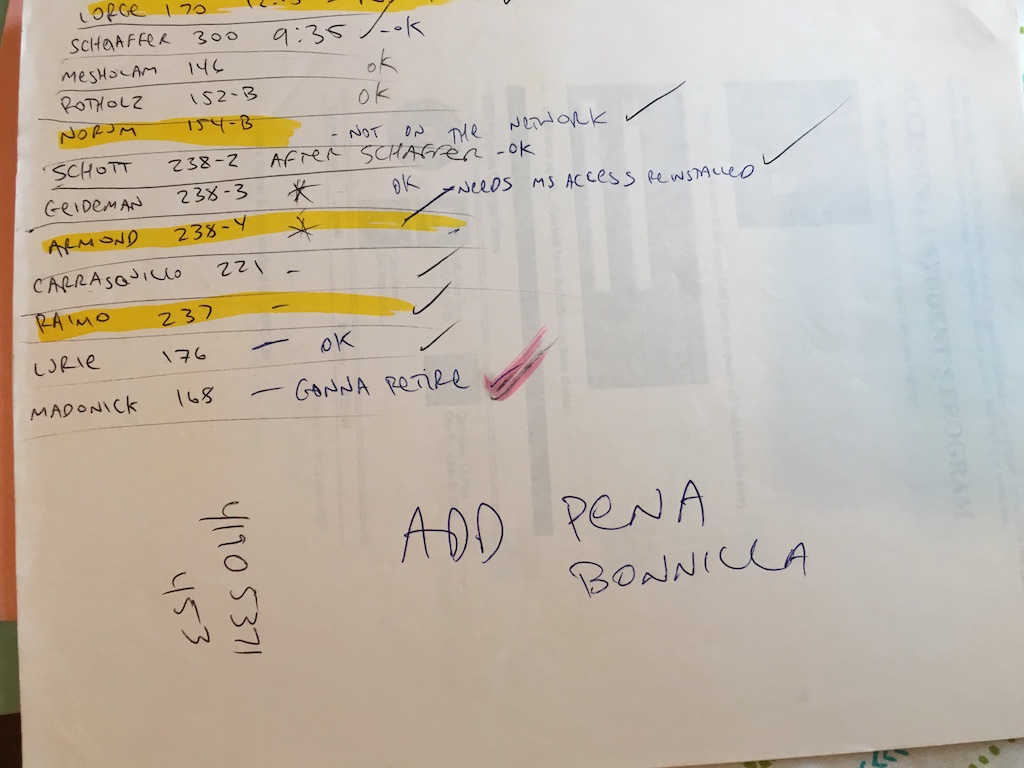 LORGE 170
SCHAAFFER 300 9:35 ✓-OK
MESHOLAM 146 OK
ROTHOLZ 152-B OK
NORUM 154-B - NOT ON THE NETWORK ✓
SCHOTT 238-2 AFTER SCHAFFER -OK
GEIDEMAN 238-3 * OK - NEEDS MS ACCESS REINSTALLED ✓
ARMOND 238-4 * ✓
CARRASQUILLO 221 - ✓
RAIMO 237 - ✓
LURIE 176 - OK ✓
MADONICK 168 - GONNA RETIRE ✓
ADD PENA
BONNILLA
4170 5371
453